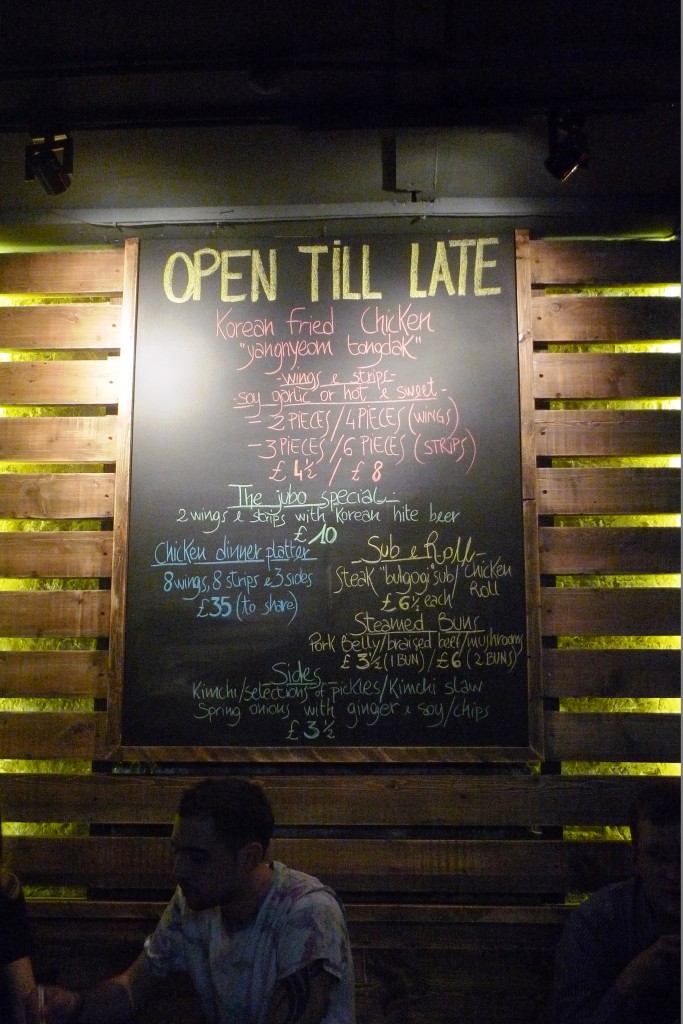 OPEN TiLL LATE
Korean Fried Chicken
"yangnyeom tongdak"
-wings & strips-
-soy garlic or hot & sweet-
-2 PIECES/4 PIECES (WINGS)
-3 PIECES/6 PIECES (STRIPS)
£ 4½ / £ 8
The jubo special
2 wings & strips with Korean hite beer
£10
Chicken dinner platter
8 wings, 8 strips & 3 sides
£35 (to share)
Sub & Roll
Steak "bulgogi" sub/Chicken Roll
£6½ each
Steamed Buns
Pork Belly/braised beef/mushrooms
£3½ (1 BUN)/£6 (2 BUNS)
Sides
Kimchi/selections of pickles/Kimchi slaw
Spring onions with ginger & soy/chips
£3½